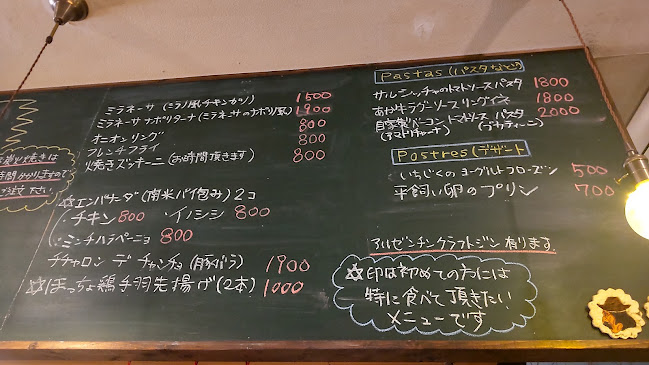 炭火焼きは
時間がかかりますので
ご注文下さい
ミラネーサ (ミラノ風チキンカツ) 1500
ミラネーサ ナポリターナ (ミラネーサのナポリ風) 1900
オニオンリング 800
フレンチフライ 800
焼きズッキーニ (お時間頂きます) 800
☆エンパナーダ (南米パイ包み) 2コ
・チキン 800 ・イノシシ 800
・ミンチハラペーニョ 800
チチャロン デ チャンチョ (豚バラ) 1900
☆ぼっちょ鶏手羽先揚げ (2本) 1000
Pastas (パスタなど)
サルシッチャのトマトソースパスタ 1800
あか牛ラグーソース リングイネ 1800
自家製ベーコントマトソース パスタ 2000
(アマトリチャーナ) (ブカティーニ)
Postres (デザート
いちじくのヨーグルトフローズン 500
平飼い卵のプリン 700
アルゼンチンクラフトジン有ります
☆印は初めての方には
特に食べて頂きたい
メニューです